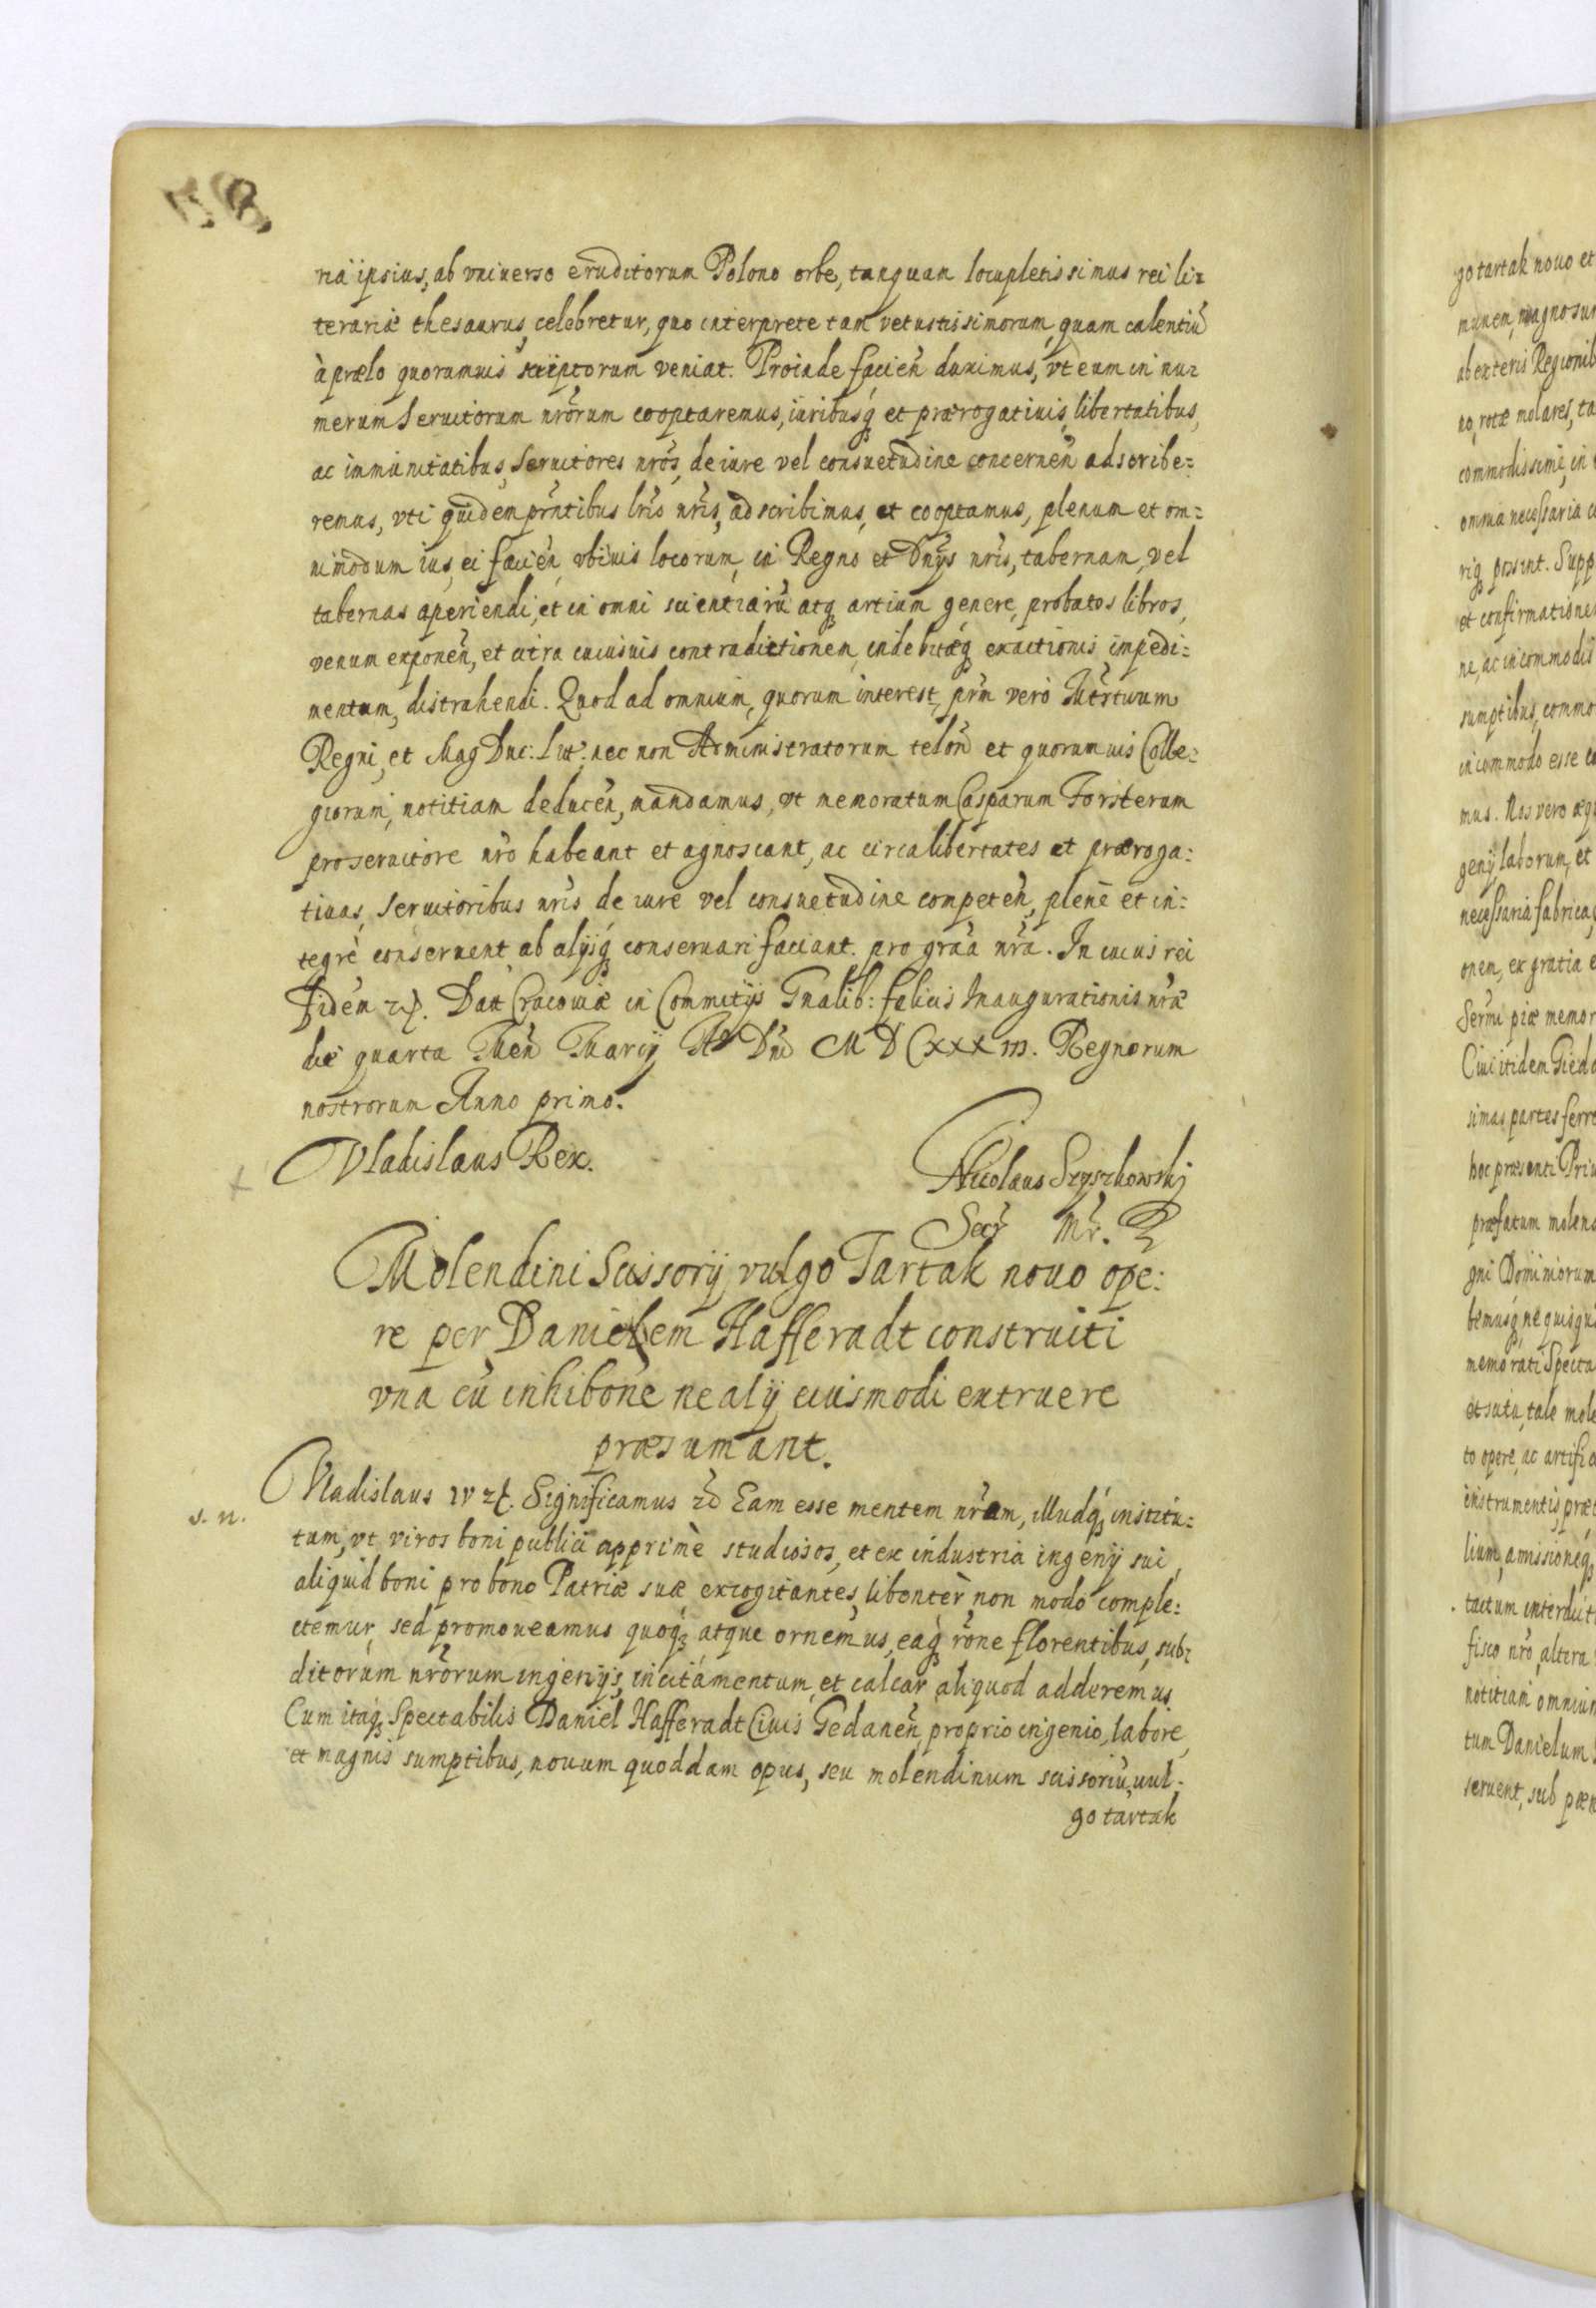 58
ria ipsius, ab vniuerso eruditorum Polono orbe, tanquam locupletissimus rei li=
terariæ thesaurus, celebretur, quo interprete tam vetustissimorum, quam calentiũ
à prælo quorumuis scriptorum veniat. Proinde facień duximus, vt eum in nu=
merum seruitorum nrõrum cooptaremus, iuribusq́ et prærogatiuis, libertatibus,
ac immunitatibus, seruitores nrõs, de iure vel consuetudine concerneñ adscribe=
remus, vti quidem prñtibus lrĩs nrĩs, adscribimus, et cooptamus, plenum et om=
nimodum ius, ei facień, vbiuis locorum, in Regno et Dñijs nrĩs, tabernam, vel
tabernas aperiendi, et in omni scientiarũ atq artium genere, probatos libros,
venum exponeñ, et citra cuiusuis contradictionem, indebitæq exactionis, impedi=
mentum, distrahendi. Quod ad omnium, quorum interest, prm̃ vero Mtrtuum
Regni, et Mag Duc: Lit: nec non Administratorum teloñ et quorumuis Colle=
giorum, notitiam deduceñ, mandamus, vt memoratum Casparum Forsterum
pro seruitore nrõ habeant et agnoscant, ac circa libertates et præroga=
tiuas, seruitoribus nrĩs de iure vel consuetudine competeñ, plenè et in=
tegrè conseruent, ab alijsq́ conseruari faciant. pro grãa nrã. In cuius rei
fidem ꝛc. Datt Cracouiæ in Commitijs Gnalib: felicis Inaugurationis nræ
die quarta Men̄ Marcij Ao Dni M D CXXXIII. Regnorum
nostrorum Anno primo.
Vladislaus Rex.
Nicolaus Szyszkowskj
Secr̃ Mr̃.
Molendini Scissorij vulgo Tartak nouo ope:
re per Danielem Hafferadt construiti
vna cũ inhibõne ne alij eiusmodi extruere
præsumant.
Vladislaus IV ꝛc. Significamus ꝛc̃ Eam esse mentem nrãm, illudq́ institu=
s. n.
tum, vt viros boni publici apprimè studiosos, et ex industria ingenij sui,
aliquid boni pro bono Patriæ suæ excogitantes, libentèr, non modo comple:
ctemur, sed promoueamus quoq́, atque ornemus, eaq́ rõne florentibus, sub=
ditorum nrõrum ingenijs, incitamentum, et calcar aliquod adderemus.
Cum itaq́ Spectabilis Daniel Hafferadt Ciuis Gedaneñ, proprio ingenio, labore,
et magnis sumptibus, nouum quoddam opus, seu molendinum scissoriũ, vul=
go tartak
go tartak nouo et
ab exteris Regionib
no, rotæ molares, ta
commodissimè, in
omnia necessaria
riq possint. Supp
et confirmatione
ne, ac incommodis
sumptibus, commo
incommodo esse
mus. Nos vero æq
genij laborum, et
necessaria fabrica
onem, ex gratia
Sermi piæ memor
Ciui itidem Geda
simas partes ferre
hoc præsenti Priu
præfatum molend
gni Dominiorum
bemusq́, ne quisqu
memorati Specta
et sutu, tale mole
to opere, ac artific
instrumentis præt
lium, amissioneq
tactum interdict
fisco nrõ, altera
notitiam omnium
tum Danielum
seruent, sub pæn